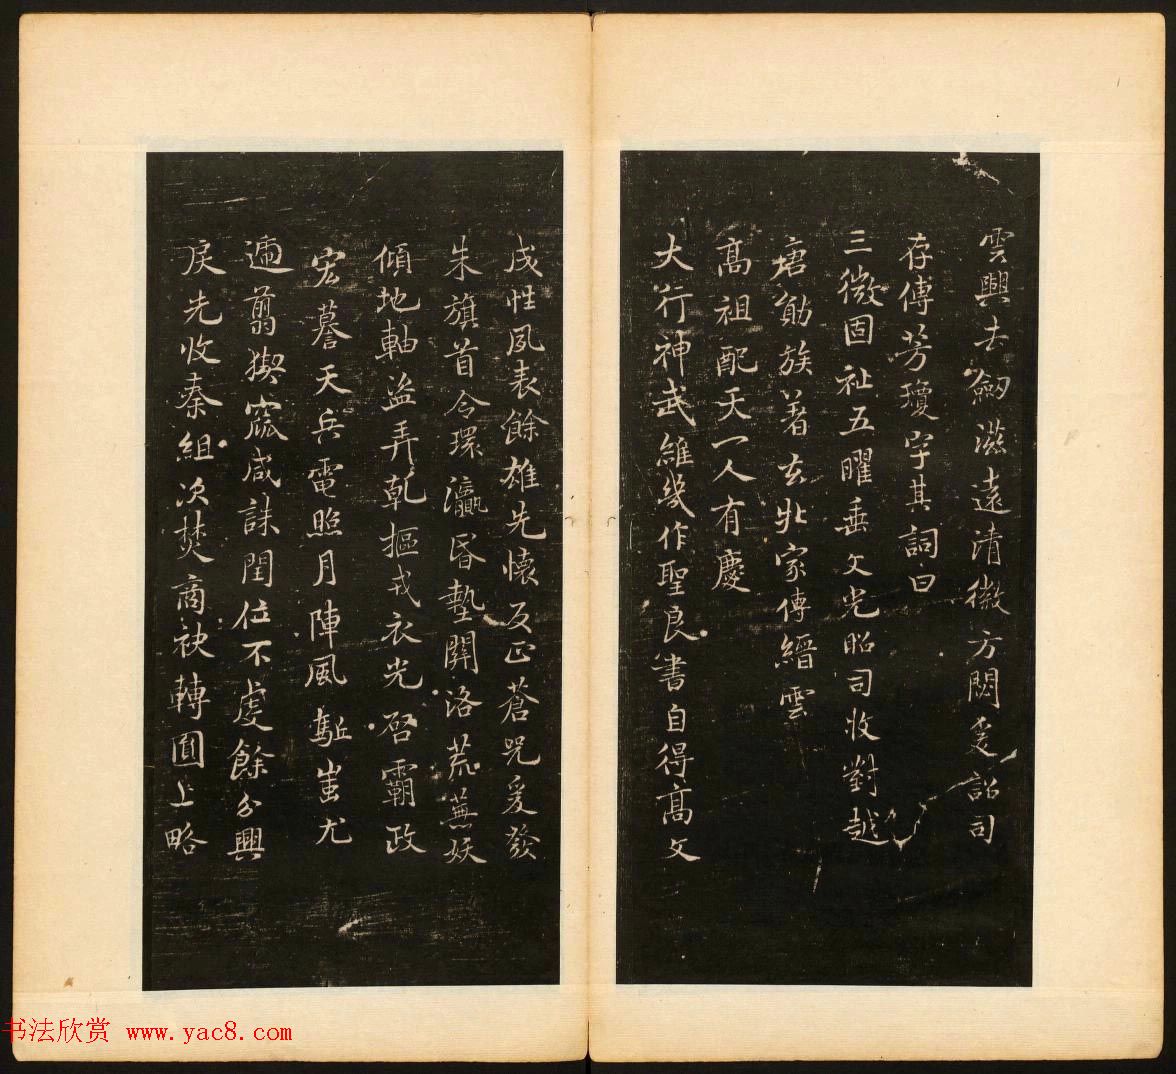 雲興去劒滋遠清徽方閟爰詔司
存傳芳瓊字其詞曰
三微固祉五曜垂文光昭司牧對越
唐勛族著玄牝家傳縉雲
高祖配天一人有慶
大行神武維幾作聖良書自得高文
成性夙表餘雄先懷反正蒼兕爰發
朱旗首令環瀛昏墊關洛荒蕪妖
傾地軸盜弄乾樞戎衣光啓霸政
宏謩天兵電照月陣風駈蚩尤
遄翦猰窳咸誅閏位不虔餘分興
戾先收秦組次焚商袂轉圓上略
书法欣赏 www.yac8.com